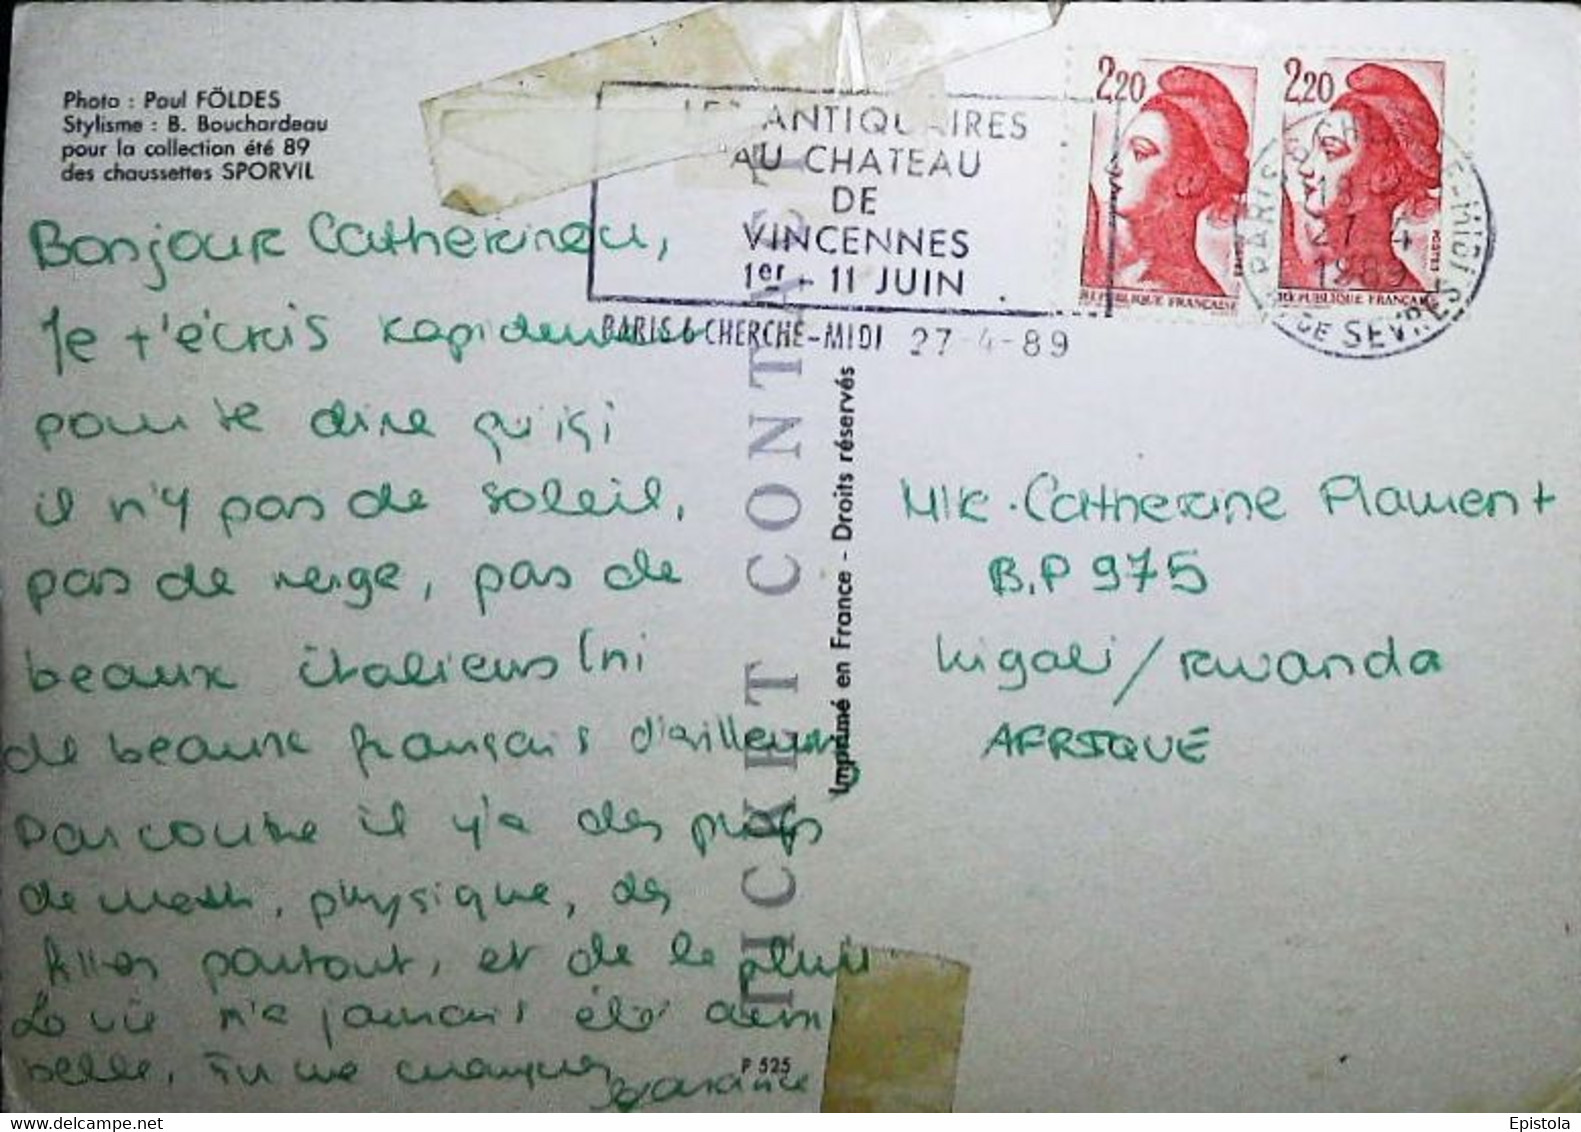 Photo : Paul FÖLDES
Stylisme : B. Bouchardeau
pour la collection été 89
des chaussettes SPORVIL
LES ANTIQUAIRES
AU CHATEAU
DE
VINCENNES
1er - 11 JUIN
PARIS 6 CHERCHE-MIDI 27-4-89
2,20
POSTES
REPUBLIQUE FRANÇAISE
2,20
POSTES
REPUBLIQUE FRANÇAISE
27 4
1989
Bonjour
Je t'écris rapidement
pour te dire qu'ici
il n'y pas de soleil,
pas de neige, pas de
beaux italiens (ni
de beaux français d'ailleurs
Par contre il y'a des profs
de math, physique, des
filles partout, et de la pluie
La vie n'a jamais été aussi
belle, Tu me manques
TICKET CONTACT
Imprimé en France - Droits réservés
P 525
Mlle. Catherine Flament
B.P 975
Kigali / Rwanda
AFRIQUE
Epistola